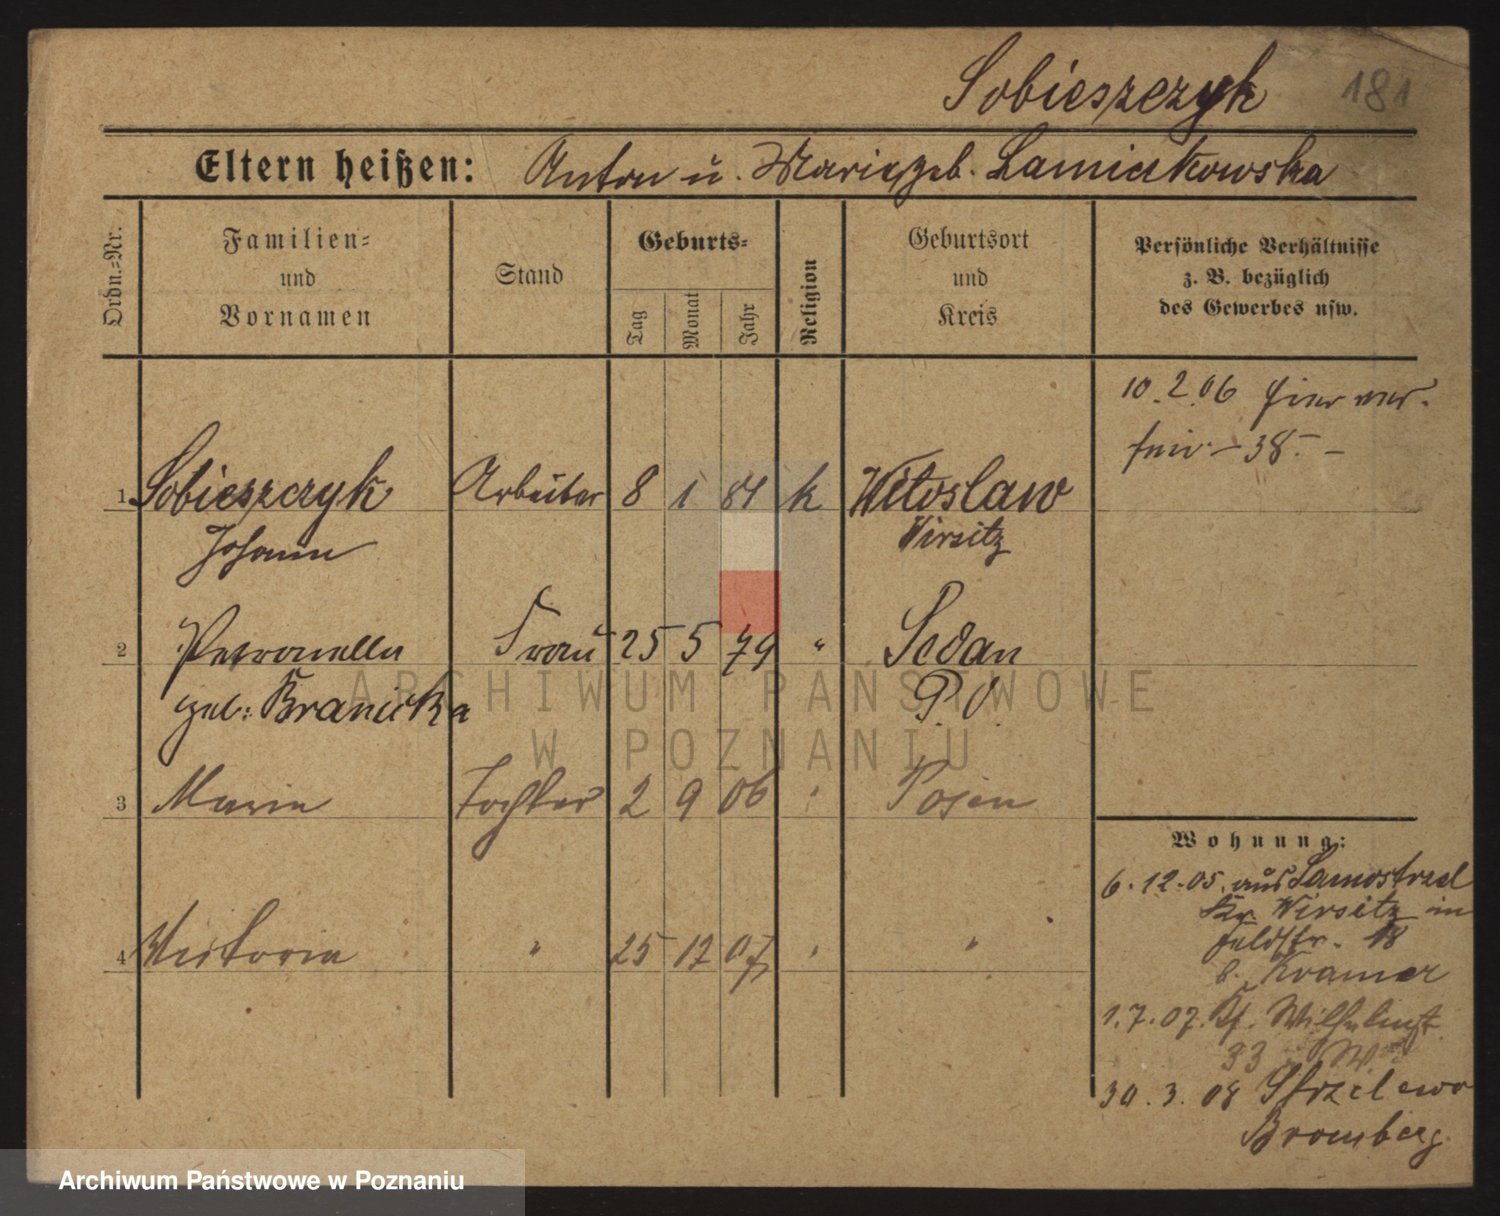 Sobieszczyk 181
Eltern heißen: Anton u. Maria geb. Lamickowska
Ordn.-Nr.
Familien-
und
Vornamen
Stand
Geburts-
Tag
Monat
Jahr
Religion
Geburtsort
und
Kreis
Persönliche Verhältnisse
z. B. bezüglich
des Gewerbes usw.
10.2.06 hier
38.-
1 Sobieszczyk Arbeiter 8 1 81 k Witoslaw
Johann Wirsitz
2 Petronella Frau 25 5 79 " Sedan
geb. Branicka P.O.
3 Maria Tochter 2 9 06 " Posen
4 Victoria " 25 12 07 " "
Wohnung:
6.12.05. aus Samostrzel
Kr. Wirsitz in
Feldstr. 18
b. Kramer
1.7.07. Kr. Wilhelmst
33 W
30.3.08 Strzelewo
Bromberg
ARCHIWUM PAŃSTWOWE
W POZNANIU
Archiwum Państwowe w Poznaniu